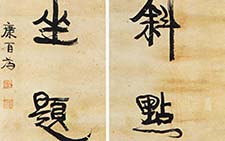 斜點
坐題
康有為